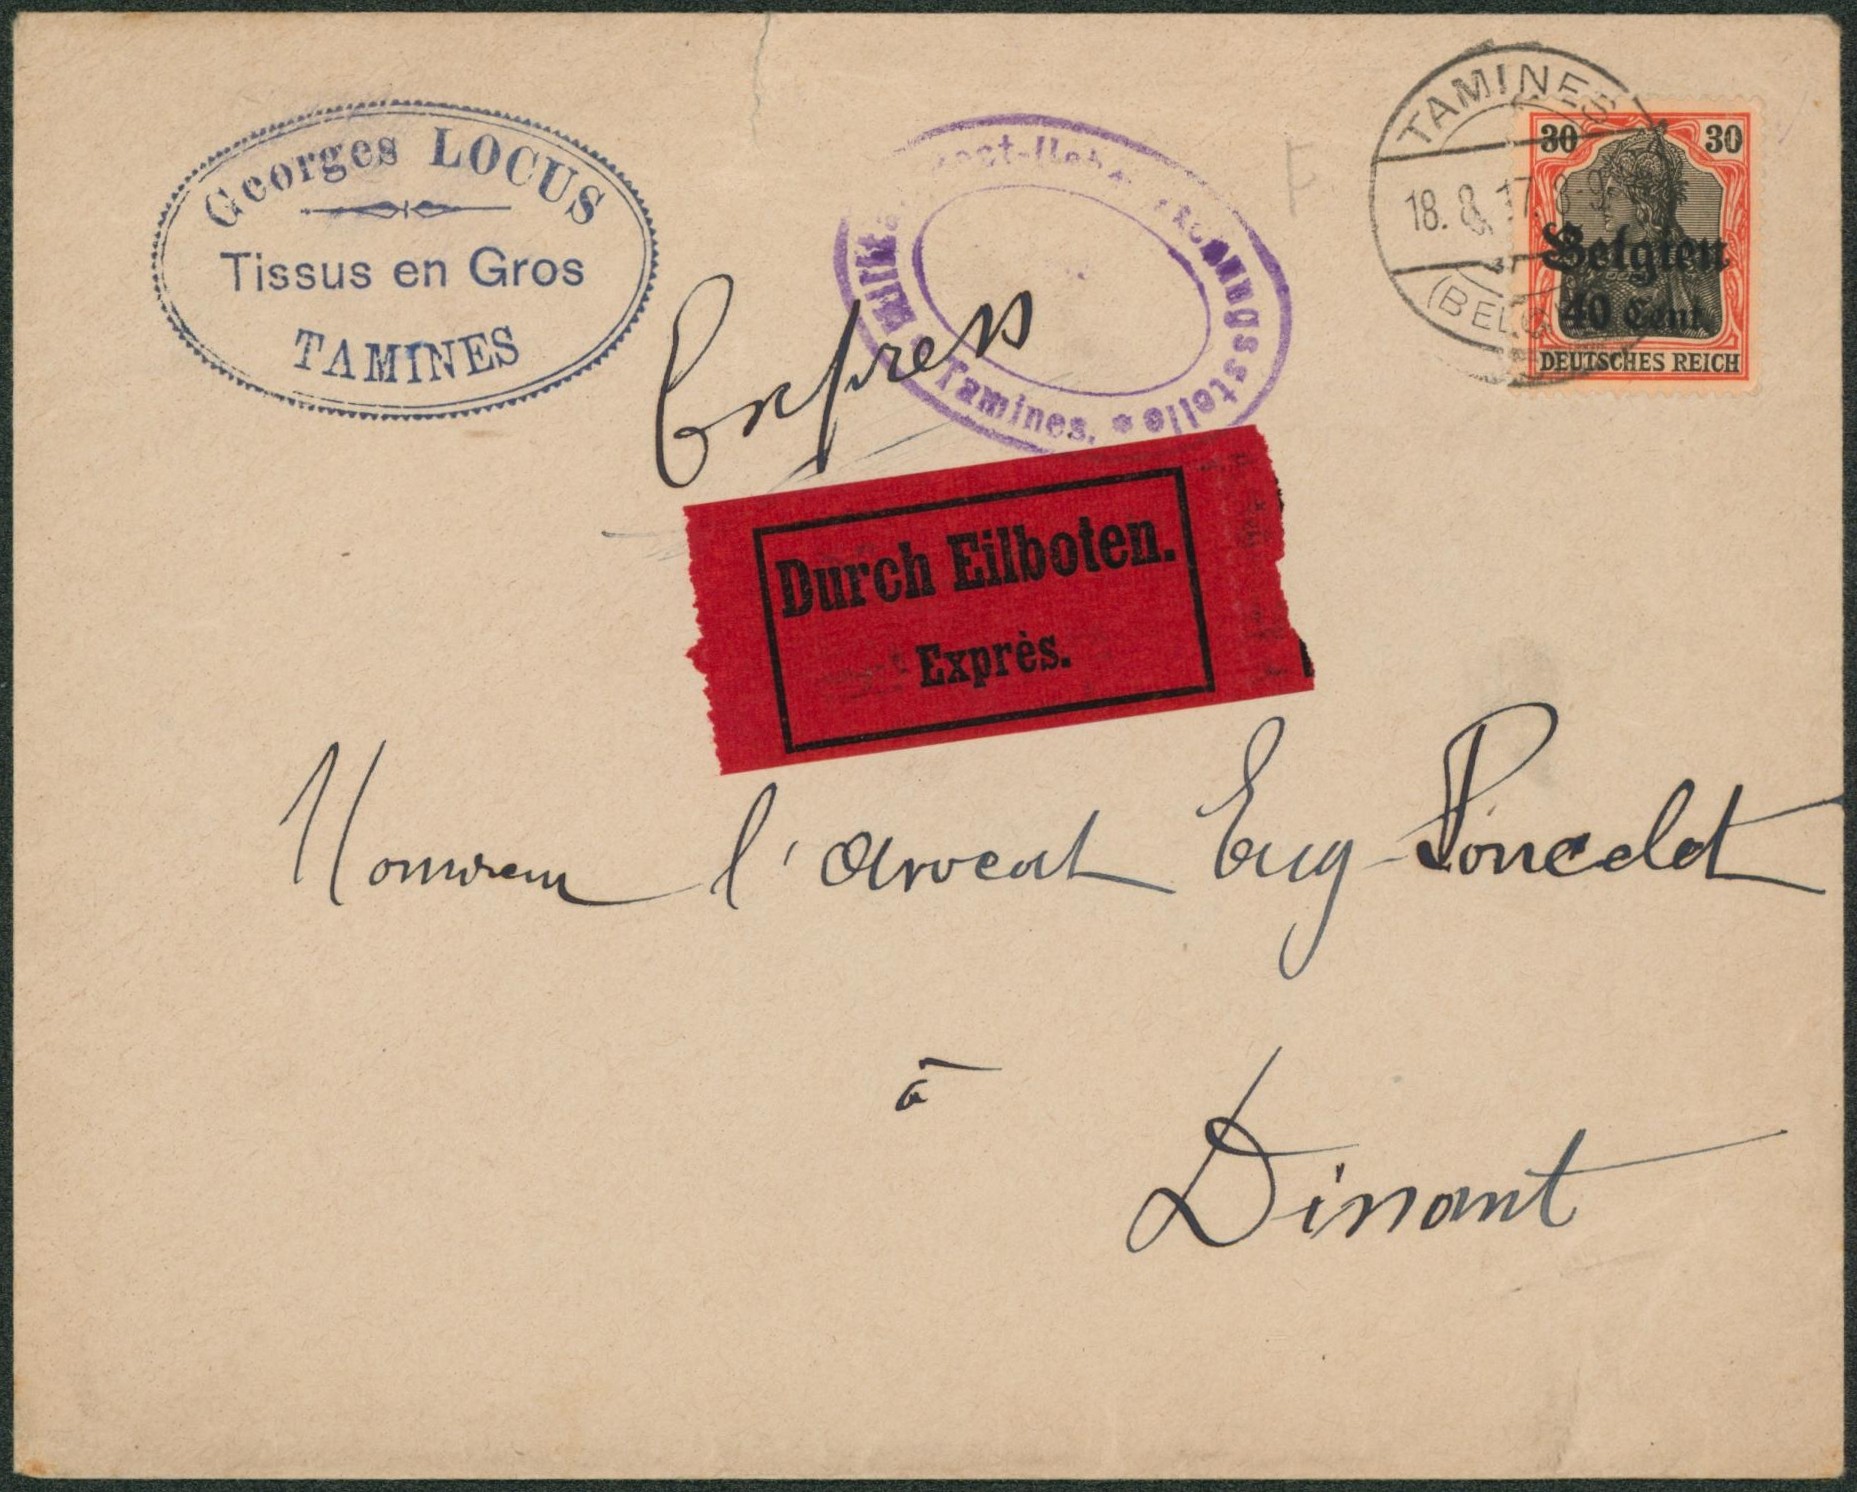 Georges LOCUS
Tissus en Gros
TAMINES
Express
Tamines.
TAMINES
18. 8. 17. 8-9
30 30
Belgien
40 Cent.
DEUTSCHES REICH
Durch Eilboten.
Exprès.
Monsieur l'avocat Eug Poncelet
à
Dinant